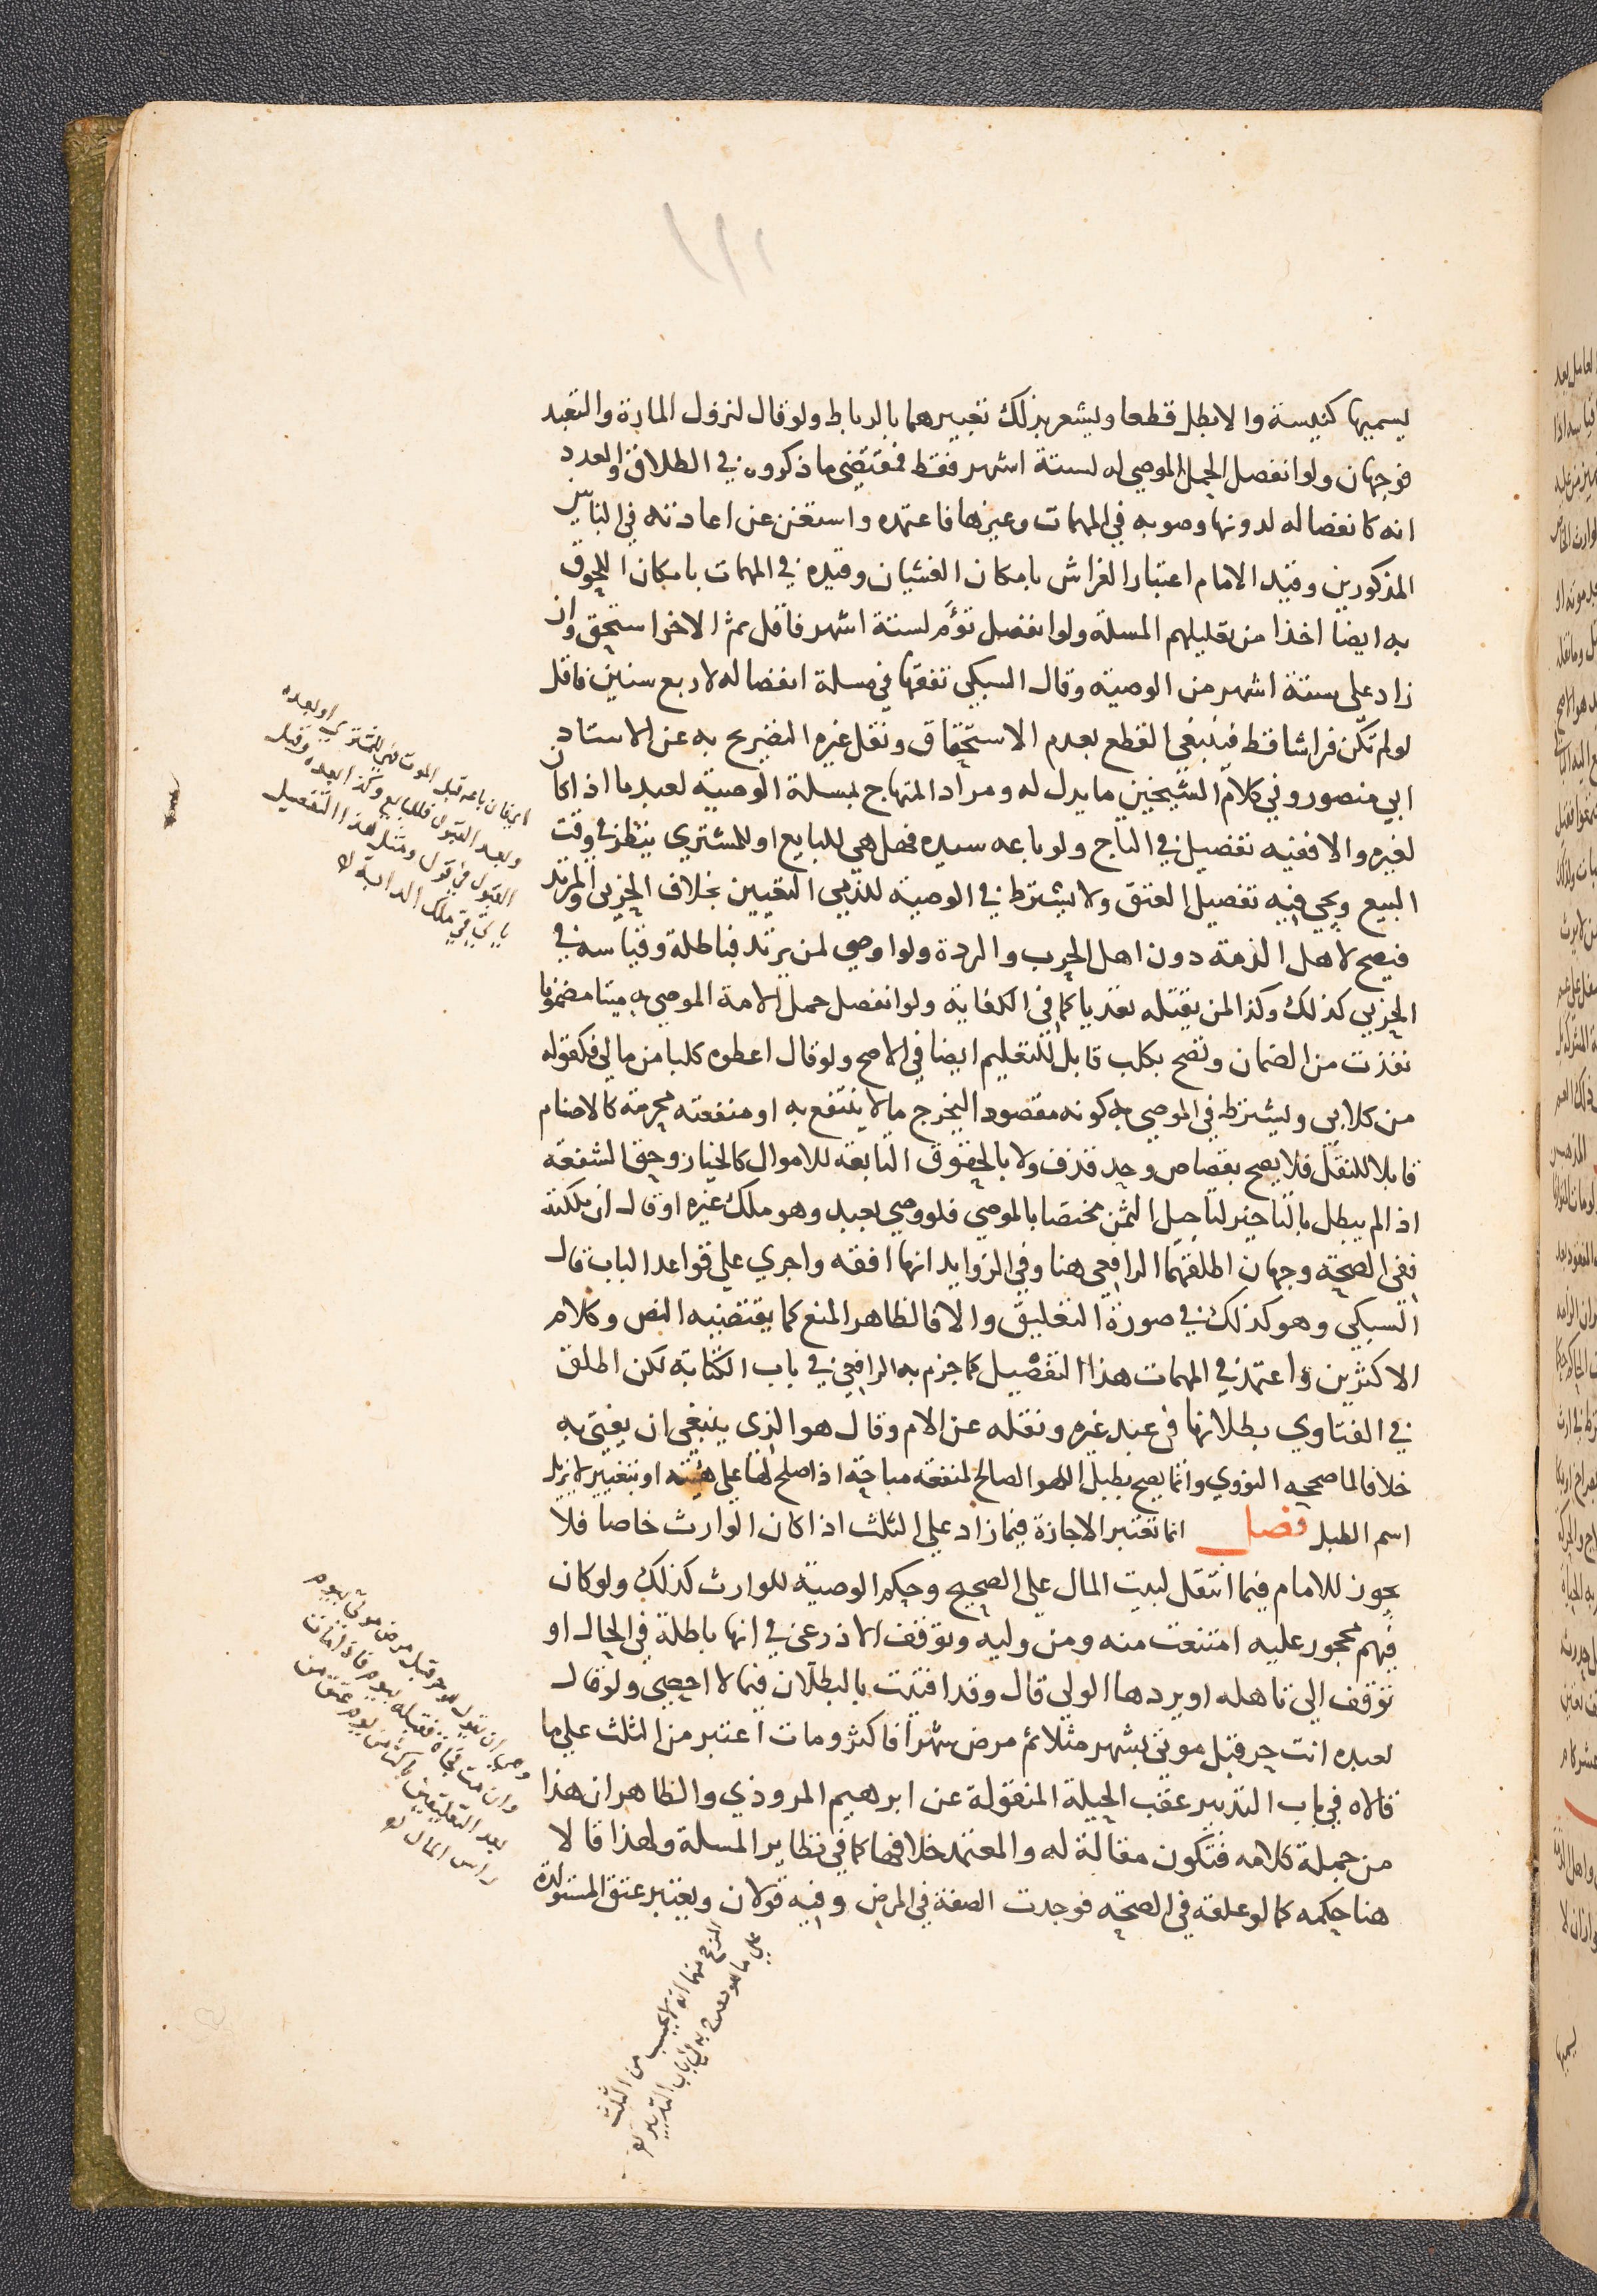 يسميها كنيسة والا بطل قطعا ويشعر بذلك تعبيرهما بالرباط ولو قال لنزول المارة والتعبد
فوجهان ولو انفصل الحمل الموصي له لستة اشهر فقط فمقتضى ما ذكروه في الطلاق والعدد
انه كانفصاله لدونها وصوبه في المهمات وغيرها فاعتمده واستغن عن اعادته في البابين
المذكورين وقيد الامام اعتبار الفراش بامكان الغشيان وقيده في المهمات بامكان اللحوق
به ايضا اخذا من تعليلهم المسلة ولو انفصل توءم لستة اشهر فاقل ثم الاخر استحق وان
زاد على ستة اشهر من الوصية وقال السبكي تفقها في مسلة انفصاله لاربع سنين فاقل
لو لم تكن فراشا قط فينبغي القطع بعدم الاستحقاق ونقل غيره التصريح به عن الاستاد
ابي منصور وفي كلام الشيخين ما يدل له ومراد المنهاج بمسلة الوصية لعبد ما اذا كان
لغيره والا ففيه تفصيل في التاج ولو باعه سيده فهل هي للبايع او للمشتري ينظر في وقت
البيع ويجي فيه تفصيل العتق ولا يشترط في الوصية للذمي التعيين بخلاف الحربي والمرتد
فيصح لاهل الذمة دون اهل الحرب والردة ولو اوصي لمن يرتد فباطلة وقياسه في
الحربي كذلك وكذا لمن يقتله تعديا كما في الكفاية ولو انفصل حمل الامة الموصي به ميتا مضمونا
نفذت من الضمان وتصح بكلب قابل للتعليم ايضا في الاصح ولو قال اعطوه كلبا من مالي فكقوله
من كلابي ويشترط في الموصي به كونه مقصودا ليخرج ما لا ينتفع به او منفعته محرمة كالاصنام
قابلا للنقل فلا يصح بقصاص وحد قذف ولا بالحقوق التابعة للاموال كالخيار وحق الشفعة
اذا لم يبطل بالتاخير لتاجيل الثمن مختصا بالموصي فلو وصي بعبد وهو ملك غيره او قال ان ملكته
ففي الصحة وجهان اطلقهما الرافعي هنا وفي الزوايد انها افقه واجري على قواعد الباب قال
السبكي وهو كذلك في صورة التعليق والا فالظاهر المنع كما يقتضيه النص وكلام
الاكثرين واعتمد في المهمات هذا التفصيل كما جزم به الرافعي في باب الكتابة لكن اطلق
في الفتاوي بطلانها في عبد غيره ونقله عن الام وقال هو الذي ينبغي ان يفتي به
خلافا لما صححه النووي وانما يصح بطبل اللهو الصالح لمنفعة مباحة اذا صلح لها على هيئته او بتغيير لا يزيل
اسم الطبل فصل انما تعتبر الاجازة فيما زاد علي الثلث اذا كان الوارث خاصا فلا
يجوز للامام فيما انتقل لبيت المال على الصحيح وحكم الوصية للوارث كذلك ولو كان
فيهم محجور عليه امتنعت منه ومن وليه وتوقف الاذرعي في انها باطلة في الحال او
توقف الى تاهله او يردها الولي قال وقد افتيت بالبطلان فيما لا احصي ولو قال
لعبده انت حر قبل موتي بشهر مثلا ثم مرض شهرا فاكثر ومات اعتبر من الثلث علي ما
قالاه في باب التدبير عقب الحيلة المنقولة عن ابرهيم المروذي والظاهر ان هذا
من جملة كلامه فتكون مقالة له والمعتمد خلافها كما في نظاير المسلة ولهذا قالا
هنا حكمه كما لو علقه في الصحة فوجدت الصفة في المرض وفيه قولان ويعتبر عتق المستولدة
اي فان باعه قبل الموت فهي للمشتري او بعده
وبعد القبول فللبايع وكذا بعده وقبل
القبول في قول ومثل هذا التفصيل
ياتي في ملك الدابة
وهي ان يقول هو حر قبل مرض موتي بيوم
وان مت فجاة فقبله بيوم فاذا مات
بعد التعليقين باكثر من يوم عتق من
راس المال
الارجح منهما انه لا يحسب من الثلث
علي ما هو في باب التدبير